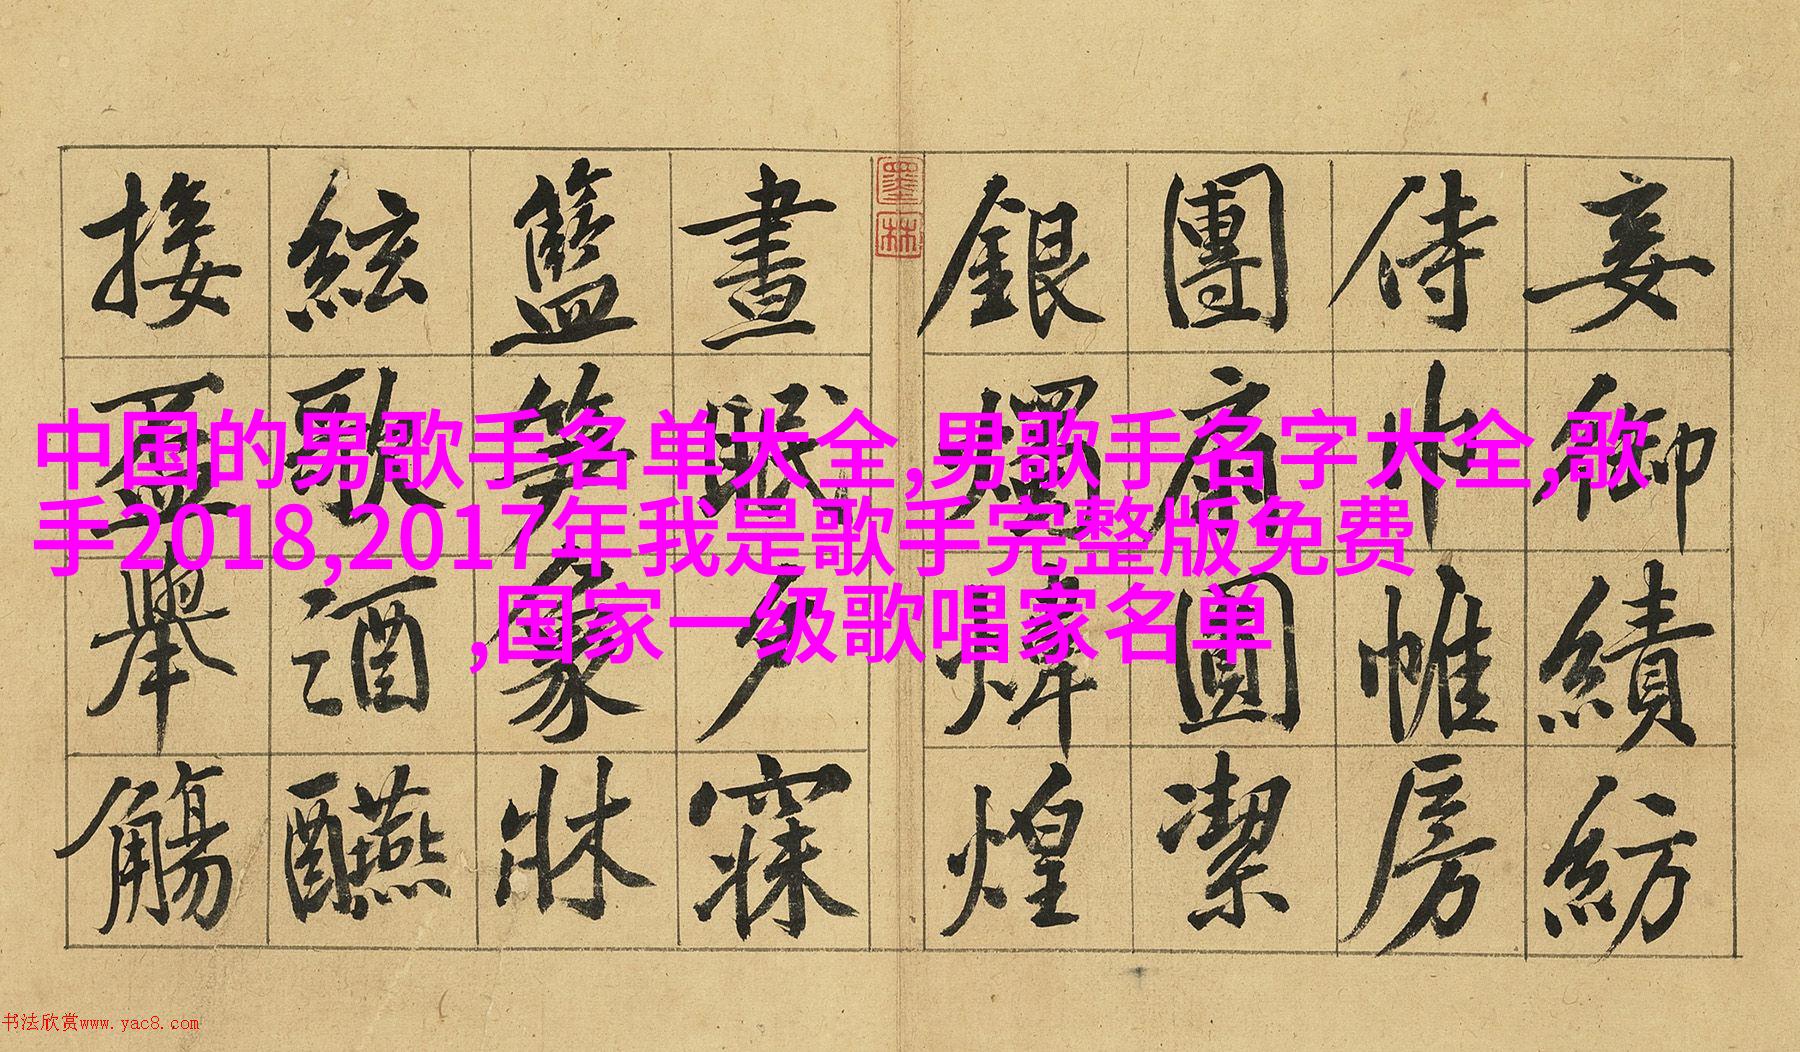 妾御績紡
侍巾帷房
團扇圓潔
銀燭煒煌
墨林
晝眠夕寐
籃笋象牀
絃歌酒醼
接盃舉觴
中国的男歌手名单大全,男歌手名字大全,歌
手2018,2017年我是歌手完整版免费
,国家一级歌唱家名单
书法欣赏www.yac8.com